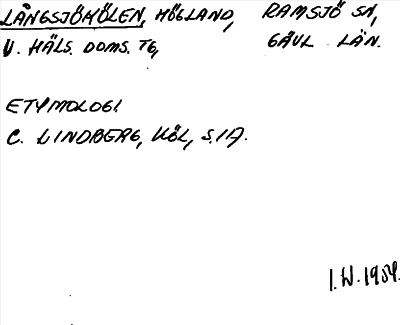 LÅNGSJÖHÖLEN, HÖGLAND, RAMSJÖ SN,
V. HÄLS. DOMS. TG, GÄVL LÄN.
ETYMOLOGI.
C. LINDBERG, KÖL, S. 17.
I.W. 1954.